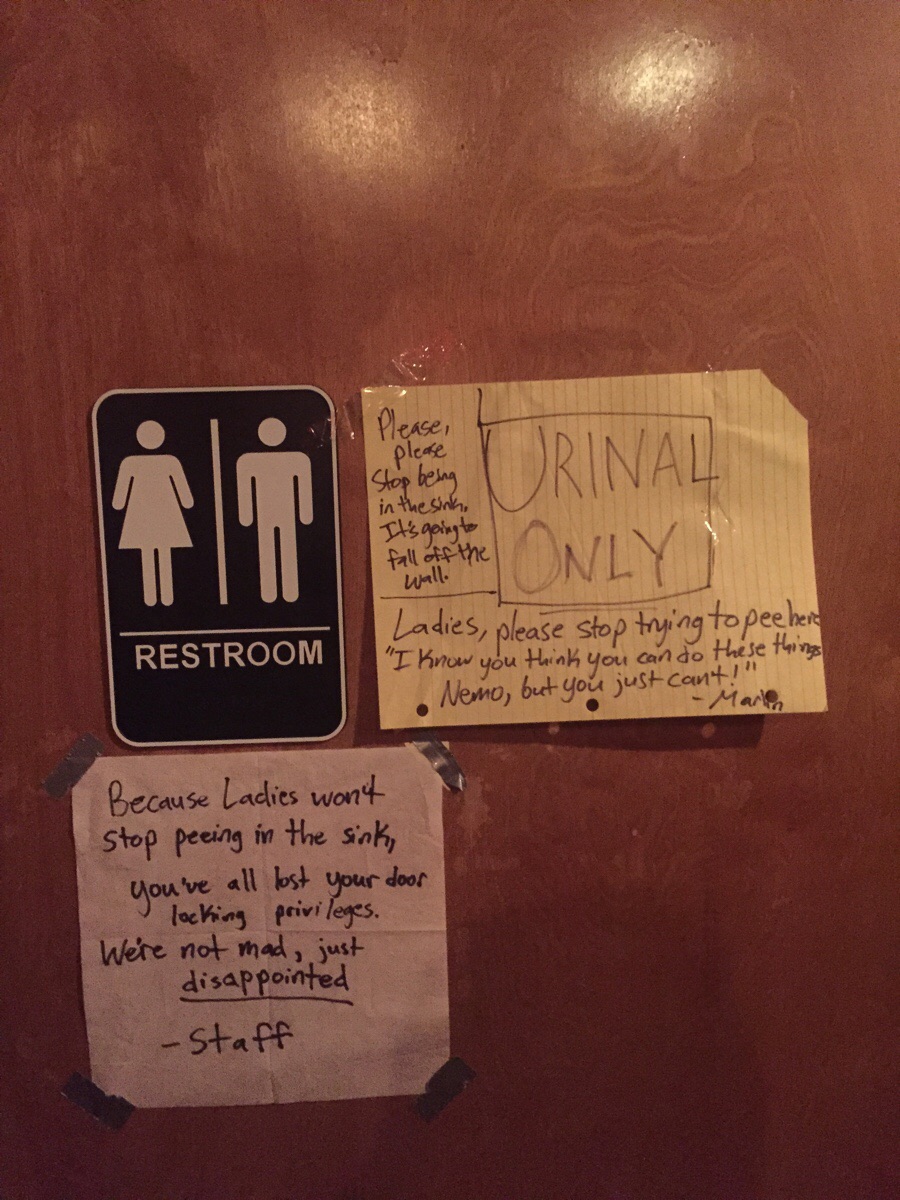 RESTROOM
Please,
please
Stop being
in the sink.
It's going to
fall off the
wall.
URINAL
ONLY
Ladies, please stop trying to pee here
"I know you think you can do these things
Nemo, but you just can't!"
- Marlin
Because Ladies won't
stop peeing in the sink,
you've all lost your door
locking privileges.
We're not mad, just
disappointed
- Staff